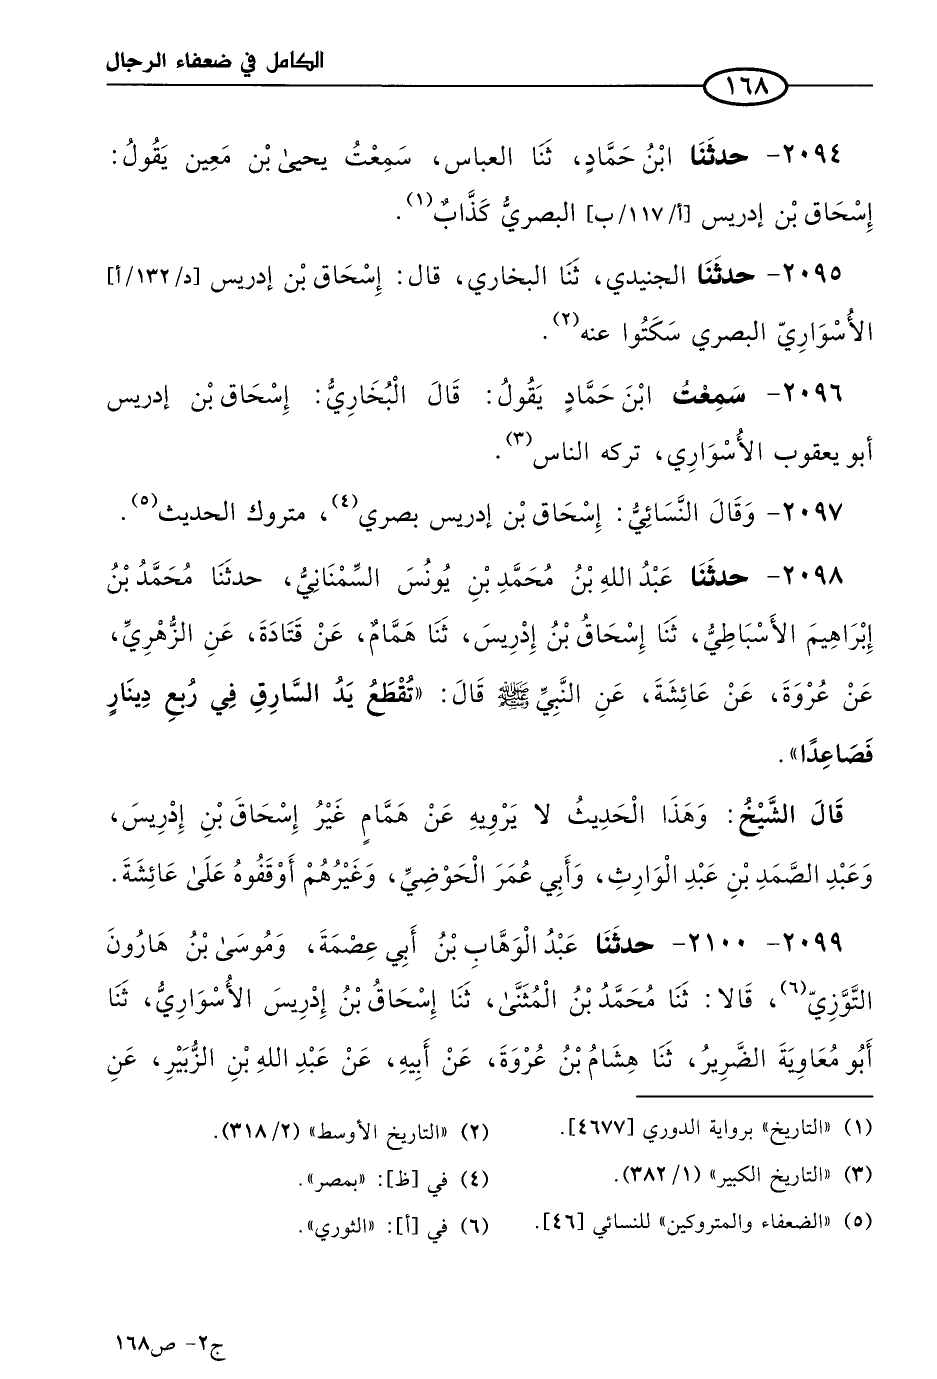 الكامل في ضعفاء الرجال
١٦٨
٢٠٩٤- حدثَنَا ابْنُ حَمَّادٍ، ثَنَا العباس، سَمِعْتُ يحيىٰ بْن مَعِين يَقُولُ:
إِسْحَاق بْن إدريس [أ/ ١١٧/ ب] البصريُّ كَذَّابٌ(١).
٢٠٩٥- حدثَنَا الجنيدي، ثَنَا البخاري، قال: إِسْحَاق بْن إدريس [د/ ١٣٢/ أ]
الأُسْوَارِيّ البصري سَكَتُوا عنه(٢).
٢٠٩٦- سَمِعْتُ ابْنَ حَمَّادٍ يَقُولُ: قَالَ الْبُخَارِيُّ: إِسْحَاق بْن إدريس
أبو يعقوب الأُسْوَارِي، تركه الناس(٣).
٢٠٩٧- وَقَالَ النَّسَائِيُّ: إِسْحَاق بْن إدريس بصري(٤)، متروك الحديث(٥).
٢٠٩٨- حدثَنَا عَبْدُ اللهِ بْنُ مُحَمَّدِ بْنِ يُونُسَ السِّمْنَانِيُّ، حدثنَا مُحَمَّدُ بْنُ
إِبْرَاهِيمَ الأَسْبَاطِيُّ، ثَنَا إِسْحَاقُ بْنُ إِدْرِيسَ، ثَنَا هَمَّامٌ، عَنْ قَتَادَةَ، عَنِ الزُّهْرِيِّ،
عَنْ عُرْوَةَ، عَنْ عَائِشَةَ، عَنِ النَّبِيِّ ﷺ قَالَ: «تُقْطَعُ يَدُ السَّارِقِ فِي رُبعِ دِينَارٍ
فَصَاعِدًا».
قَالَ الشَّيْخُ: وَهَذَا الْحَدِيثُ لا يَرْوِيهِ عَنْ هَمَّامٍ غَيْرُ إِسْحَاقَ بْنِ إِدْرِيسَ،
وَعَبْدِ الصَّمَدِ بْنِ عَبْدِ الْوَارِثِ، وَأَبِي عُمَرَ الْحَوْضِيِّ، وَغَيْرُهُمْ أَوْقَفُوهُ عَلَىٰ عَائِشَةَ.
٢٠٩٩- ٢١٠٠- حدثَنَا عَبْدُ الْوَهَّابِ بْنُ أَبِي عِصْمَةَ، وَمُوسَىٰ بْنُ هَارُونَ
التَّوَّزِيّ(٦)، قَالا: ثَنَا مُحَمَّدُ بْنُ الْمُثَنَّىٰ، ثَنَا إِسْحَاقُ بْنُ إِدْرِيسَ الأُسْوَارِيُّ، ثَنَا
أَبُو مُعَاوِيَةَ الضَّرِيرُ، ثَنَا هِشَامُ بْنُ عُرْوَةَ، عَنْ أَبِيهِ، عَنْ عَبْدِ اللهِ بْنِ الزُّبَيْرِ، عَنِ
(١) «التاريخ» برواية الدوري [٤٦٧٧].
(٢) «التاريخ الأوسط» (٢/ ٣١٨).
(٣) «التاريخ الكبير» (١/ ٣٨٢).
(٤) في [ظ]: «بمصر».
(٥) «الضعفاء والمتروكين» للنسائي [٤٦].
(٦) في [أ]: «الثوري».
ج٢- ص١٦٨